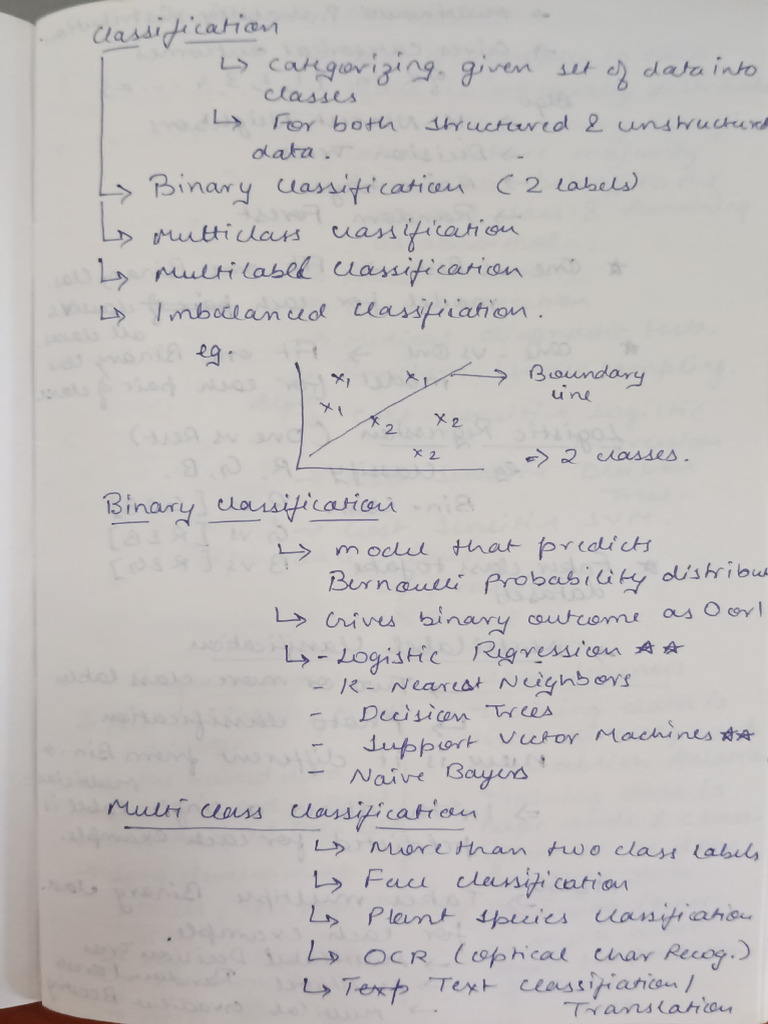 Classification
↳ categorizing given set of data into
classes
↳ For both structured & unstructured
data.
↳ Binary Classification (2 labels)
↳ Multiclass Classification
↳ Multilabel Classification
↳ Imbalanced Classification.
eg.
x₁ x₁ → Boundary
line
x₁ x₂ x₂
x₂ ⇒ 2 classes.
Binary Classification
↳ model that predicts
Bernoulli Probability distribu
↳ Gives binary outcome as 0 or 1
↳ - Logistic Regression ★★
- K-Nearest Neighbors
- Decision Trees
- Support Vector Machines ★★
- Naive Bayers
Multi class Classification
↳ More than two class labels
↳ Face classification
↳ Plant species classification
↳ OCR (optical char Recog.)
↳ Text classification /
Translation